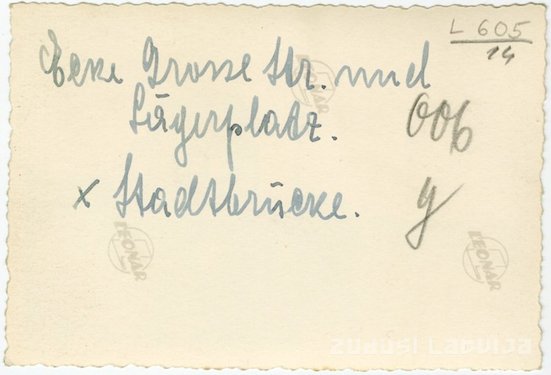 L 605
14
Ecke Grosse Str. und
Jägerplatz.
006
x Stadtbrücke.
y
LEONAR
LEONAR
LEONAR
ZUDUSI LATVIJA